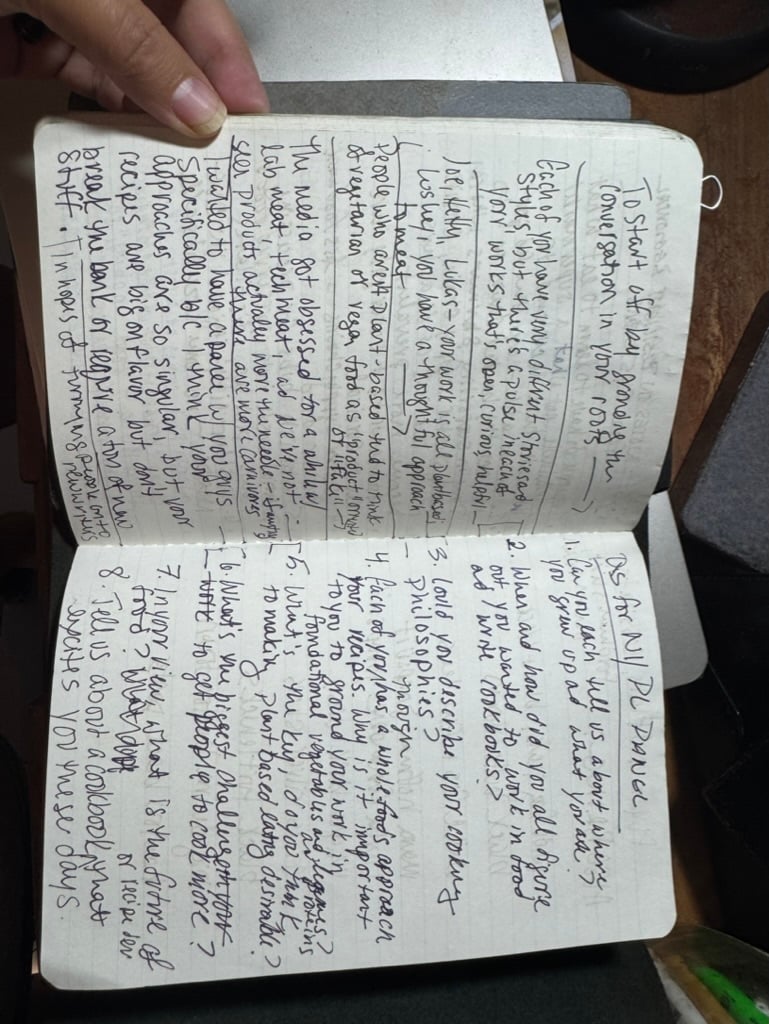 To start off by grounding the
conversation in your roots →
Each of you have very different stories and
styles, but there's a pulse in each of
your works that's open, curious, helpful
Joe, Hetty, Lukas – your work is all plant based
Lesley, you have a thoughtful approach
to meat
People who aren't plant-based tend to think
of vegetarian or vegan food as "product" or
The media got obsessed for a while w/
lab meat, tech meat, and we've not
seen products actually move the needle – if anything
there are more carnivores
I wanted to have a panel w/ you guys
specifically b/c I think your
approaches are so singular, but your
recipes are big on flavor but don't
break the bank or require a ton of new
stuff. In hopes of turning people onto
new writers
Qs for NY PL PANEL
1. Can you each tell us about where
you grew up and what you ate?
2. When and how did you all figure
out you wanted to work in food
and write cookbooks?
3. Could you describe your cooking
philosophies?
though
4. Each of you has a whole foods approach
your recipes. Why is it important
to you to ground your work in
foundational vegetables and legumes?
as proteins
5. What's the key, do you think,
to making plant based eating desirable?
6. What's the biggest challenge
to get people to cook more?
7. In your view, what is the future of
food?
or recipe dev
8. Tell us about a cookbook that
excites you these days.